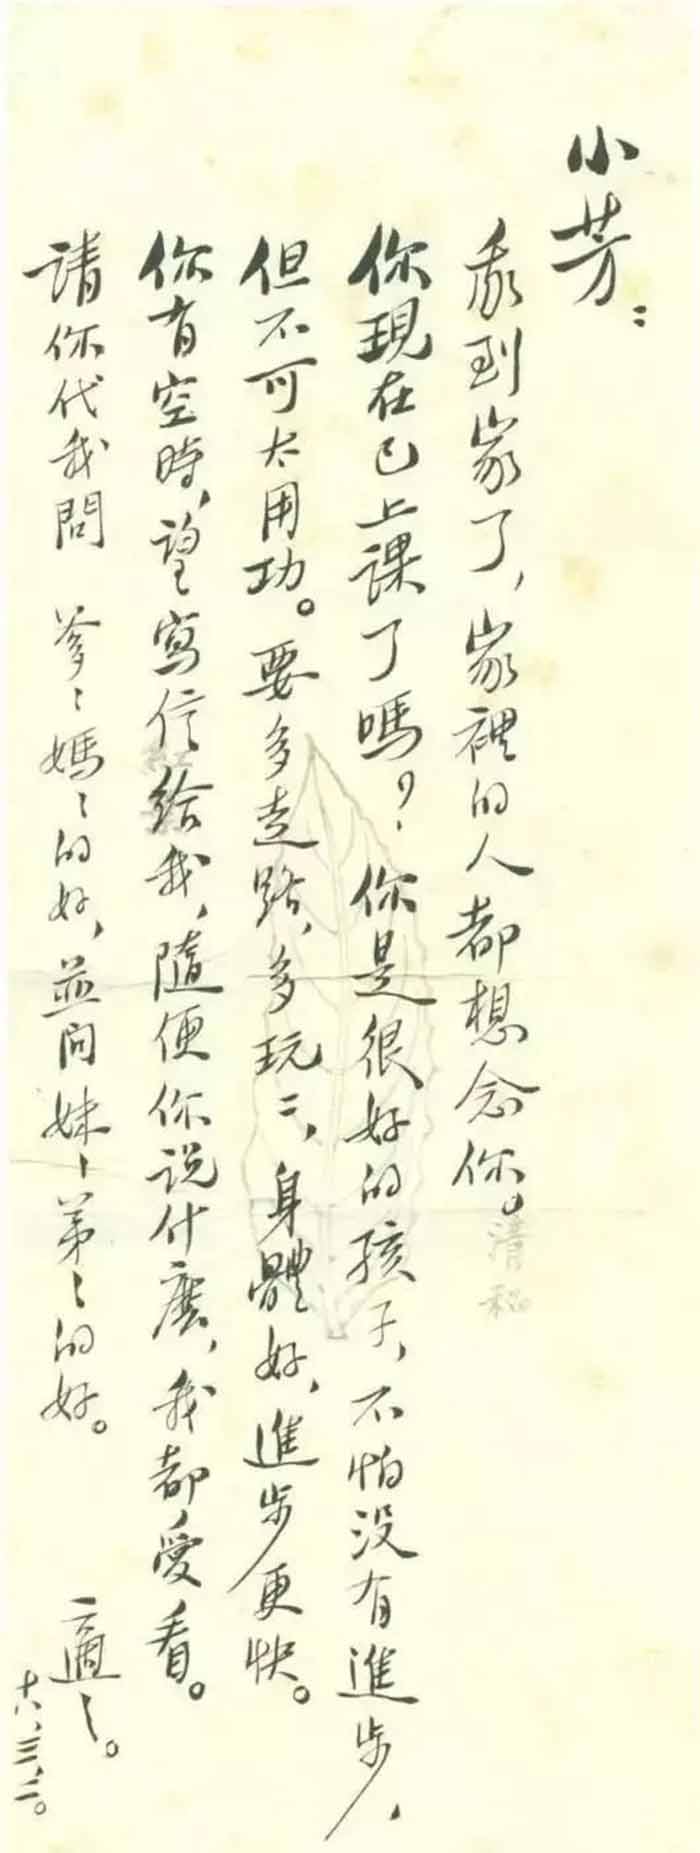 小芳：
我到家了，家裡的人都想念你。
你現在已上課了嗎？你是很好的孩子，不怕没有進步，
但不可太用功。要多走路，多玩〻，身體好，進步更快。
你有空時，望寫信給我，隨便你说什麽，我都愛看。
請你代我問 爹〻媽〻的好，並问妹〻弟〻的好。
適〻。
十八、三、二。
清秘